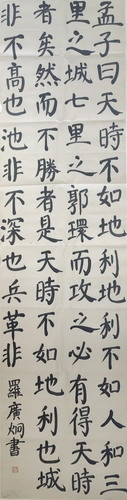 孟子曰天時不如地利地利不如人和三
里之城七里之郭環而攻之必有得天時
者矣然而不勝者是天時不如地利也城
非不高也池非不深也兵革非
羅廣炯書